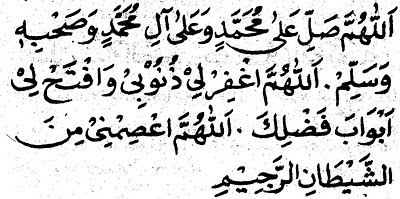 اَللّٰهُمَّ صَلِّ عَلٰى مُحَمَّدٍ وَعَلٰى آلِ مُحَمَّدٍ وَصَحْبِهٖ
وَسَلِّمْ. اَللّٰهُمَّ اغْفِرْ لِيْ ذُنُوْبِيْ وَافْتَحْ لِيْ
اَبْوَابَ فَضْلِكَ. اَللّٰهُمَّ اعْصِمْنِيْ مِنَ
الشَّيْطَانِ الرَّجِيْمِ